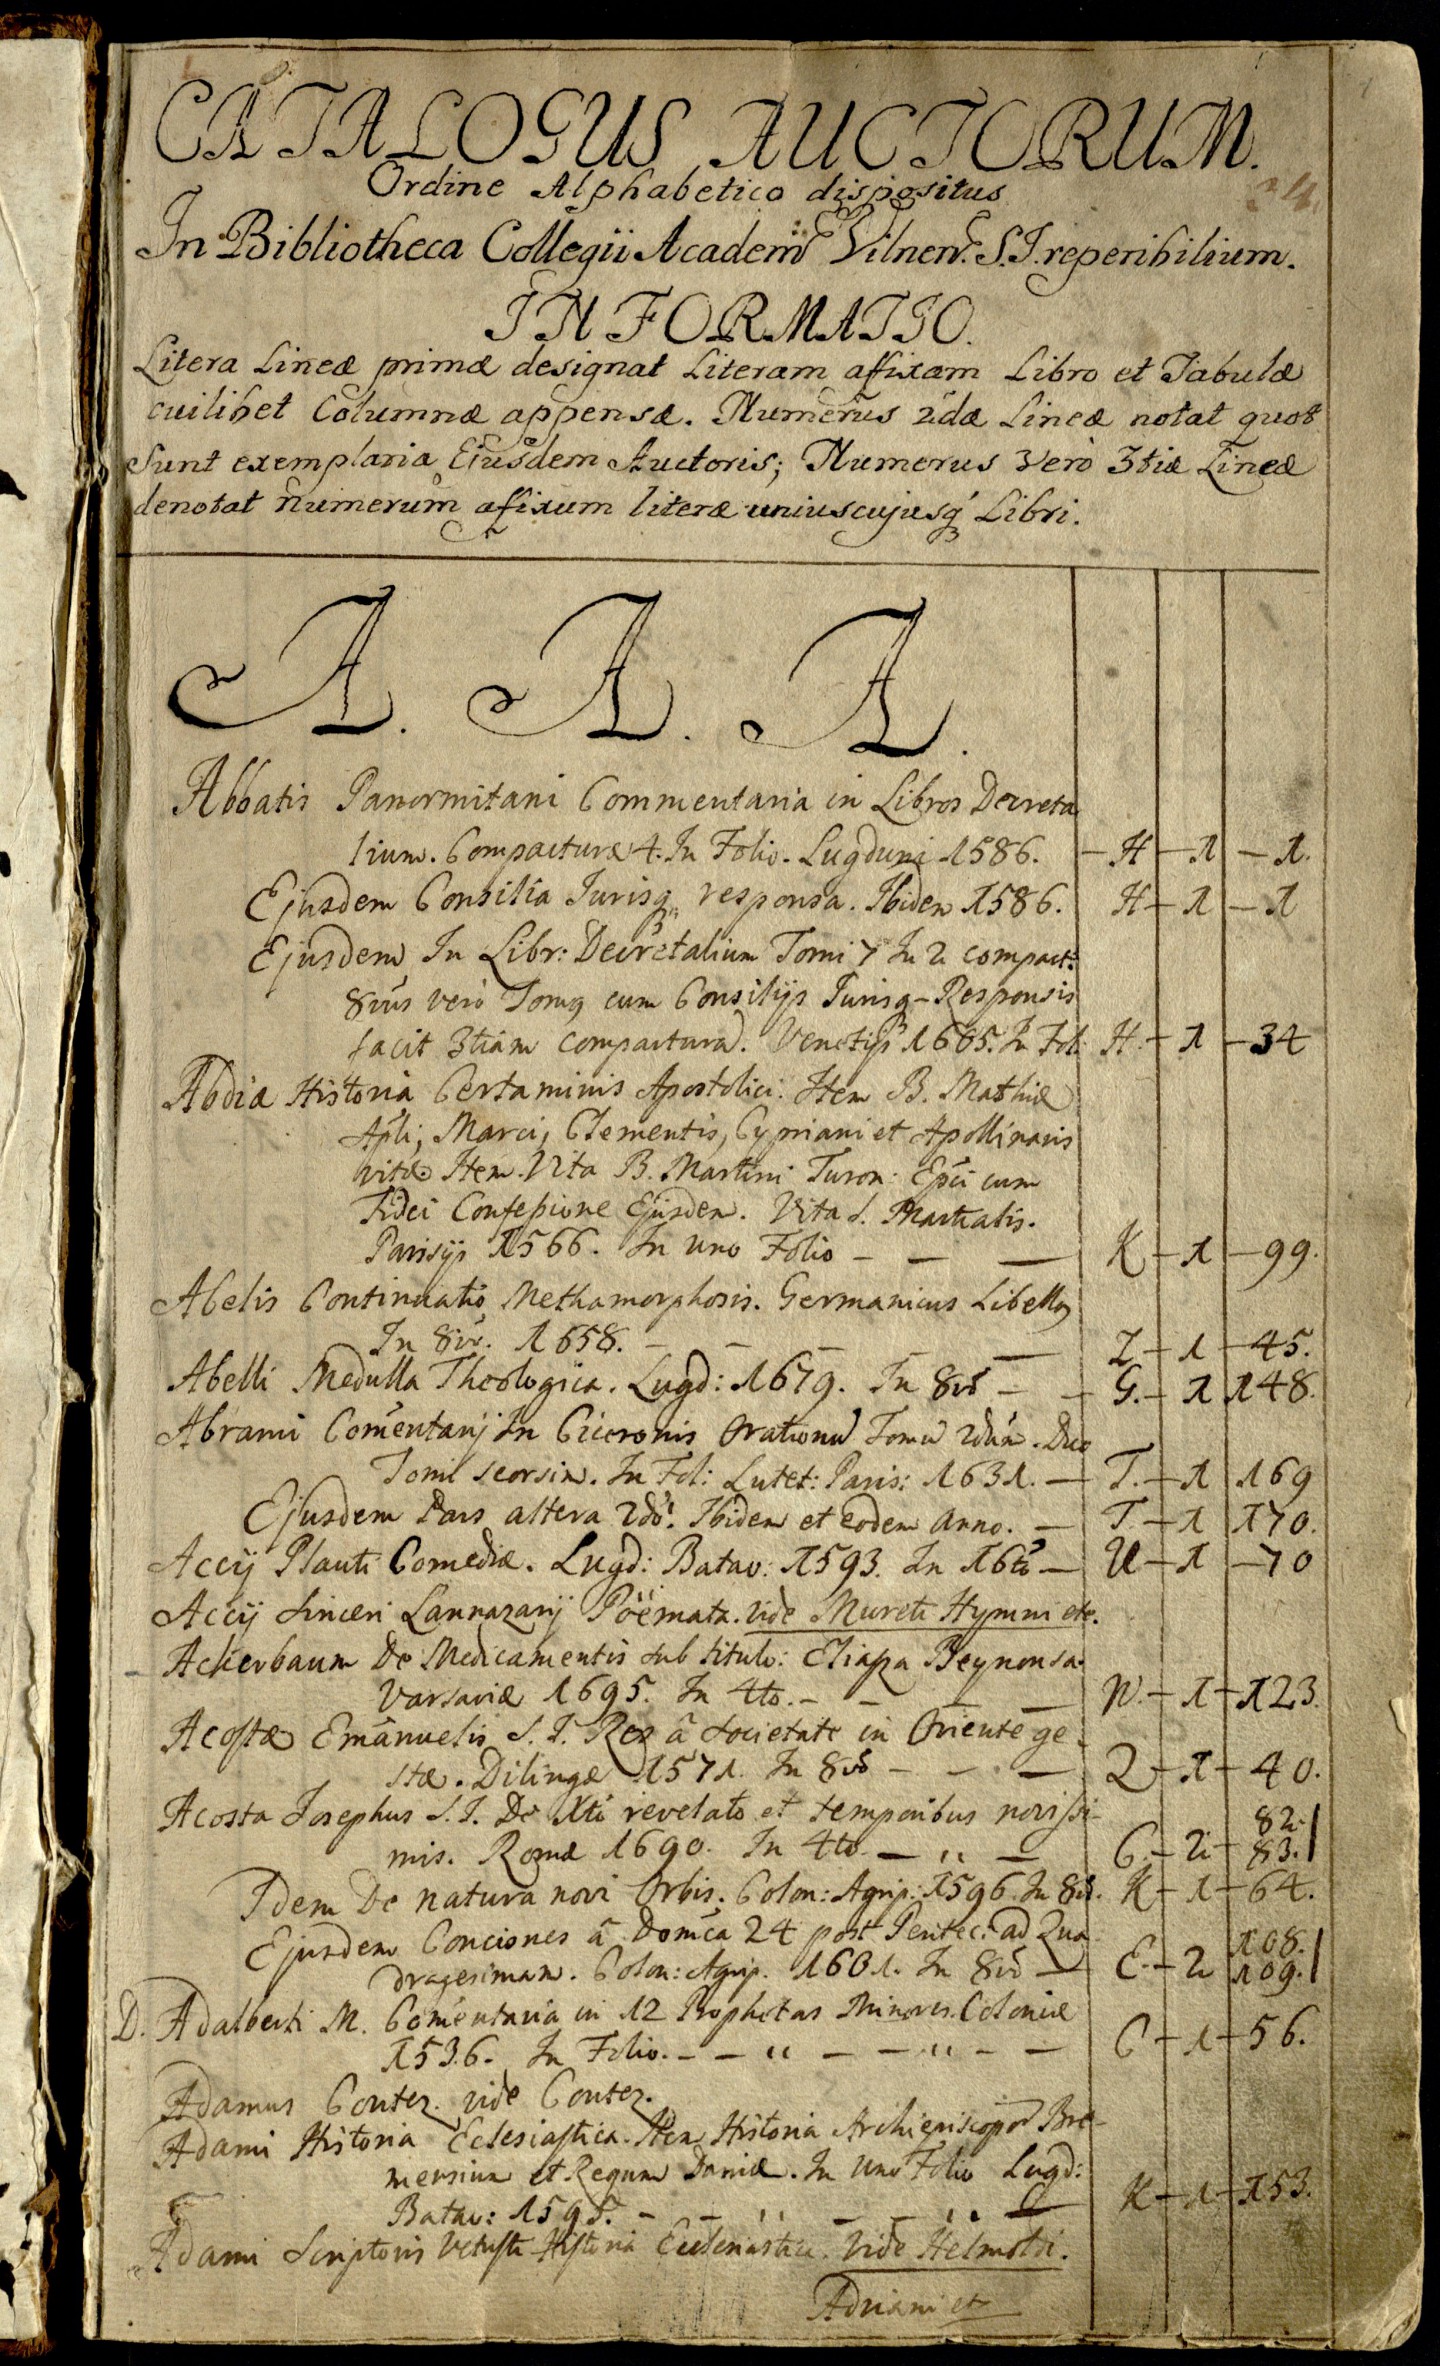 CATALOGUS AUCTORUM.
Ordine Alphabetico dispositus
In Bibliotheca Collegii Academ Vilnen. S.J. reperibilium.
INFORMATIO.
Litera Lineæ primæ designat Literam afixam Libro et Tabulæ
cuilibet Columnæ appensæ. Numerus 2dæ Lineæ notat quot
sunt exemplaria Eiusdem Auctoris; Numerus verò 3tiæ Lineæ
denotat numerum afixum literæ uniuscujusq Libri.
A. A. A.
Abbatis Panormitani Commentaria in Libros Decreta
lium. Compacturæ 4. In Folio. Lugduni 1586. - H - 1 - 1.
Ejusdem Consilia Jurisq responsa. Ibidem 1586. H - 1 - 1
Ejusdem In Libr: Decretalium Tomi 7 In 2 compact:
8vus verò Tomq cum Consilijs Jurisq - Responsis
facit 3tiam compacturã. Venetijs 1605. In Fol: H. - 1 - 34
Abdiæ Historia Certaminis Apostolici. Item B. Mathiæ
Apli, Marci, Clementis, Cypriani et Apollinaris
vitæ. Item Vita B. Martini Turon: Epĩ cum
Fidei Confessione Ejusdem. Vita S. Martialis.
Parisijs 1566. In uno Folio - - - K - 1 - 99.
Abelis Continuatio Methamorphosis. Germanicus Libellq
In 8vo. 1658. - - - - Z - 1 - 45.
Abelli Medulla Theologica. Lugd: 1679. In 8vo - - G. - 1 148.
Abrami Comẽntarij In Ciceronis Orationũ Tomũ 2dum. Duo
Tomi seorsim. In Fol: Lutet: Paris: 1631. - T. - 1 169
Ejusdem Pars altera 2di. Ibidem et eodem Anno. - T - 1 170.
Accij Plauti Comediæ. Lugd: Batav: 1593. In 16to - U - 1 - 70
Accij Sinceri Sannazarij Poëmata. vide Mureti Hymni etc.
Ackerbaum De Medicamentis sub titulo: Eliæ Beynon sa.
Varsaviæ 1695. In 4to. - - - - W. - 1 - 123.
Acostæ Emãnuelis S.J. Res â Societate in Oriente ge
stæ. Dilingæ 1571. In 8vo - - - Q - 1 - 40.
Acosta Josephus S.J. De Xto revelato et temporibus novissi-
mis. Romæ 1690. In 4to. - ,, - C. - 2 - 82. 83.
Idem De natura novi Orbis. Colon: Agrip: 1596. In 8vo. K - 1 - 64.
Ejusdem Conciones â Domĩca 24 post Pentec: ad Qua
dragesimam. Colon: Agrip. 1601. In 8vo - E. - 2 108. 109.
D. Adalberti M. Comẽntaria in 12 Prophetas Minores. Coloniæ
1536. In Folio. - - ,, - - ,, - - C - 1 - 56.
Adamus Contez. vide Contez.
Adami Historia Eclesiastica. Item Historia Archiepiscopor Bre-
mensium et Regum Daniæ. In uno Folio Lugd:
Batav: 1595. - - ,, - ,, - K - 1 - 153.
Adami Scriptoris Vetusti Historia Ecclesiastica. Vide Helmoldi.
Adriani et